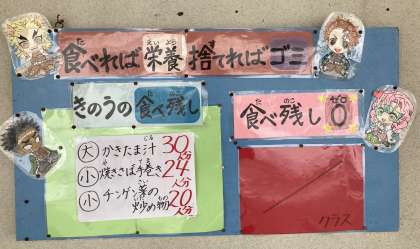 食べれば栄養捨てればゴミ
きのうの食べ残し
大 かきたま汁 30人分
小 焼きさば手巻き 24人分
小 チンゲン菜の炒め物 20人分
食べ残し0
ゼロ
クラス